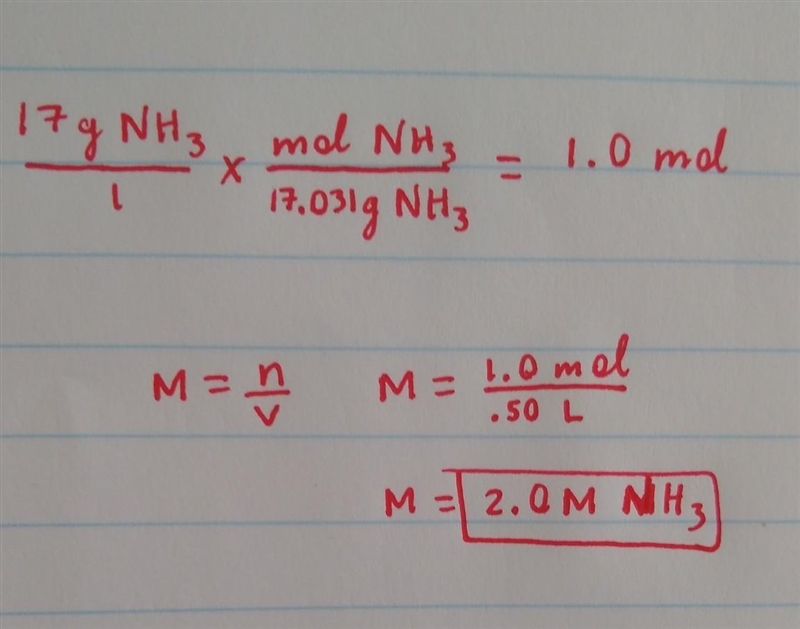 17g NH3 / 1 x mol NH3 / 17.031g NH3 = 1.0 mol
M = n / v M = 1.0 mol / .50 L
M = 2.0 M NH3